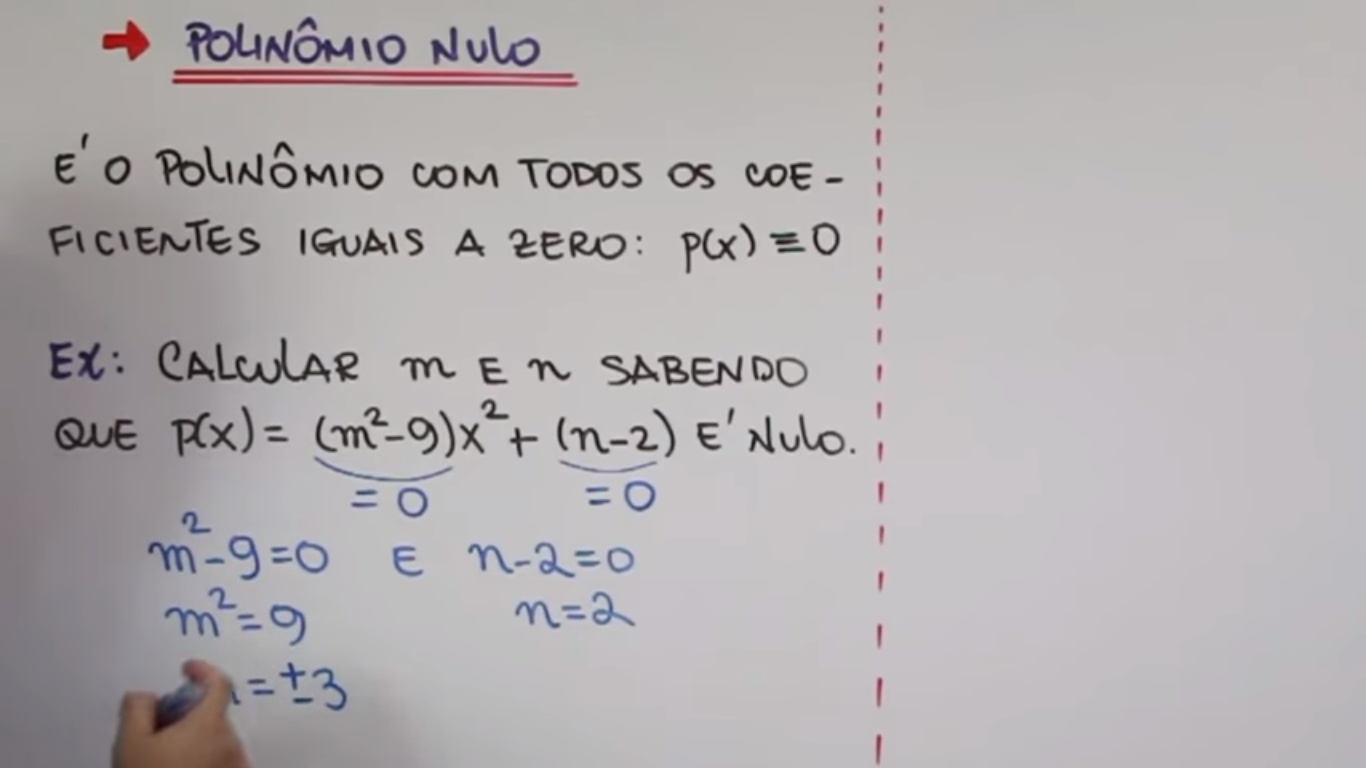 → POLINÔMIO NULO
E' O POLINÔMIO COM TODOS OS COE-
FICIENTES IGUAIS A ZERO: p(x) ≡ 0
EX: CALCULAR m E n SABENDO
QUE p(x) = (m²-9)x² + (n-2) E' NULO.
= 0 = 0
m²-9=0 E n-2=0
m²=9 n=2
=±3